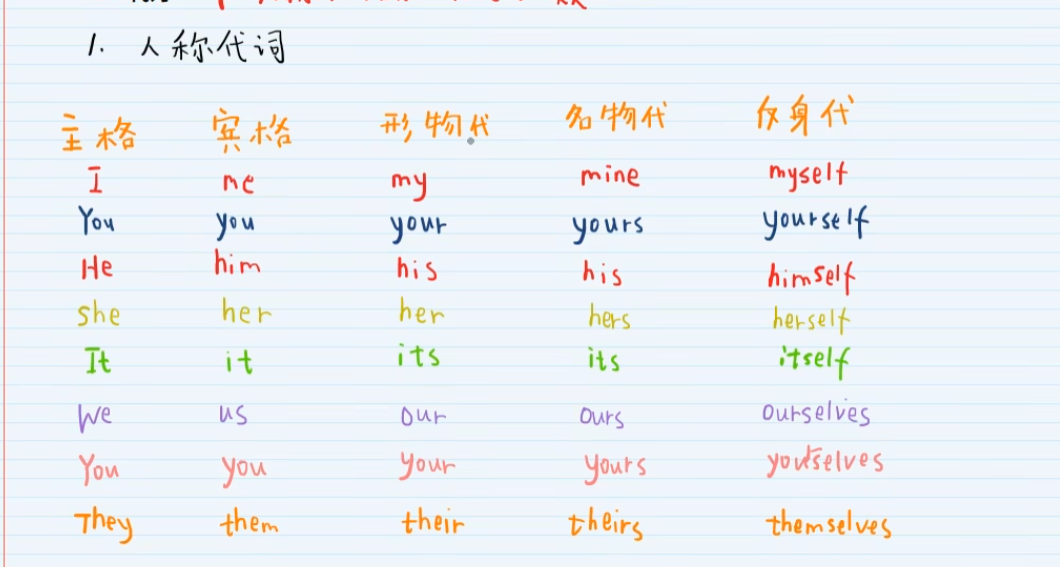 1. 人称代词
主格 宾格 形物代 名物代 反身代
I me my mine myself
You you your yours yourself
He him his his himself
she her her hers herself
It it its its itself
We us our ours ourselves
You you your yours yourselves
They them their theirs themselves